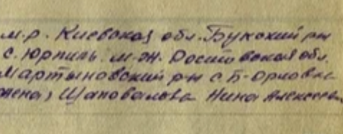 м.р. Киевская обл. Букский рн
с. Юрпиль. м-ж. Ростовская обл.
Мартыновский р-н с. Б-Орловка
жена) Шаповалова Нина Алексеев